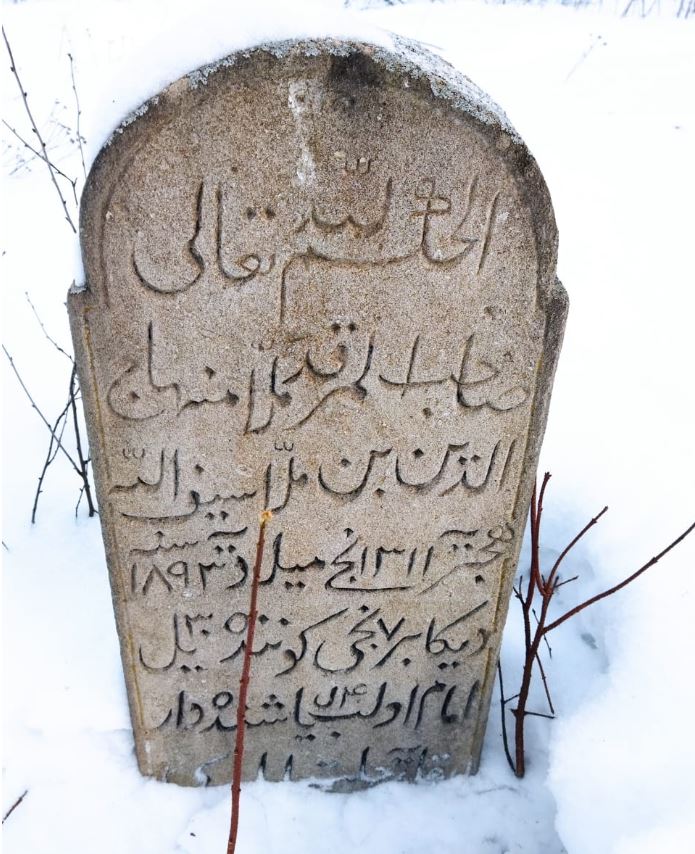 الحكم لله تعالى
صاحب المرقد ملا منهاج
الدين بن ملا سيف الله
هجريه ١٣١١ نجى ميلاديه سنه ١٨٩٣
ديكابر ٧ نجى كوننده ٣٠ ييل
امام اولب ياشنده دار